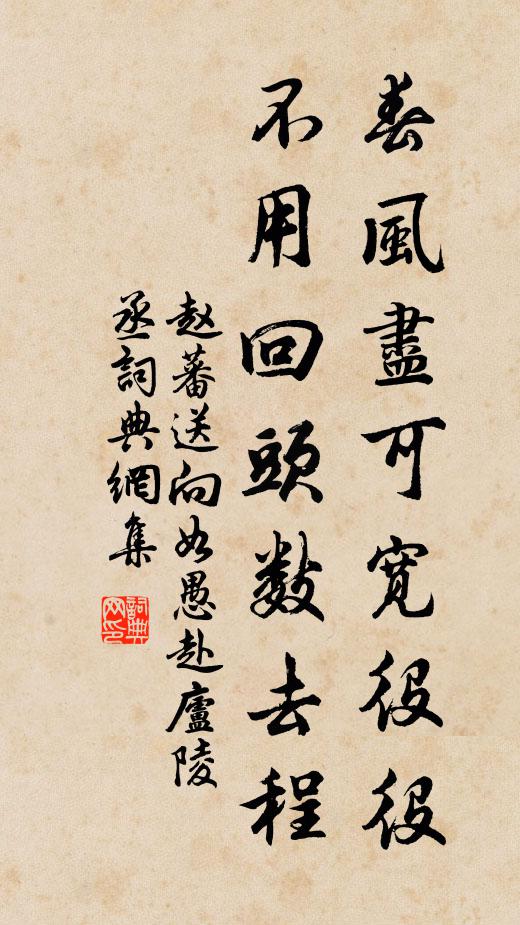 春風盡可寬役役
不用回頭數去程
赵蕃送向如愚赴廬陵
丞詞典網集
詞典
网印